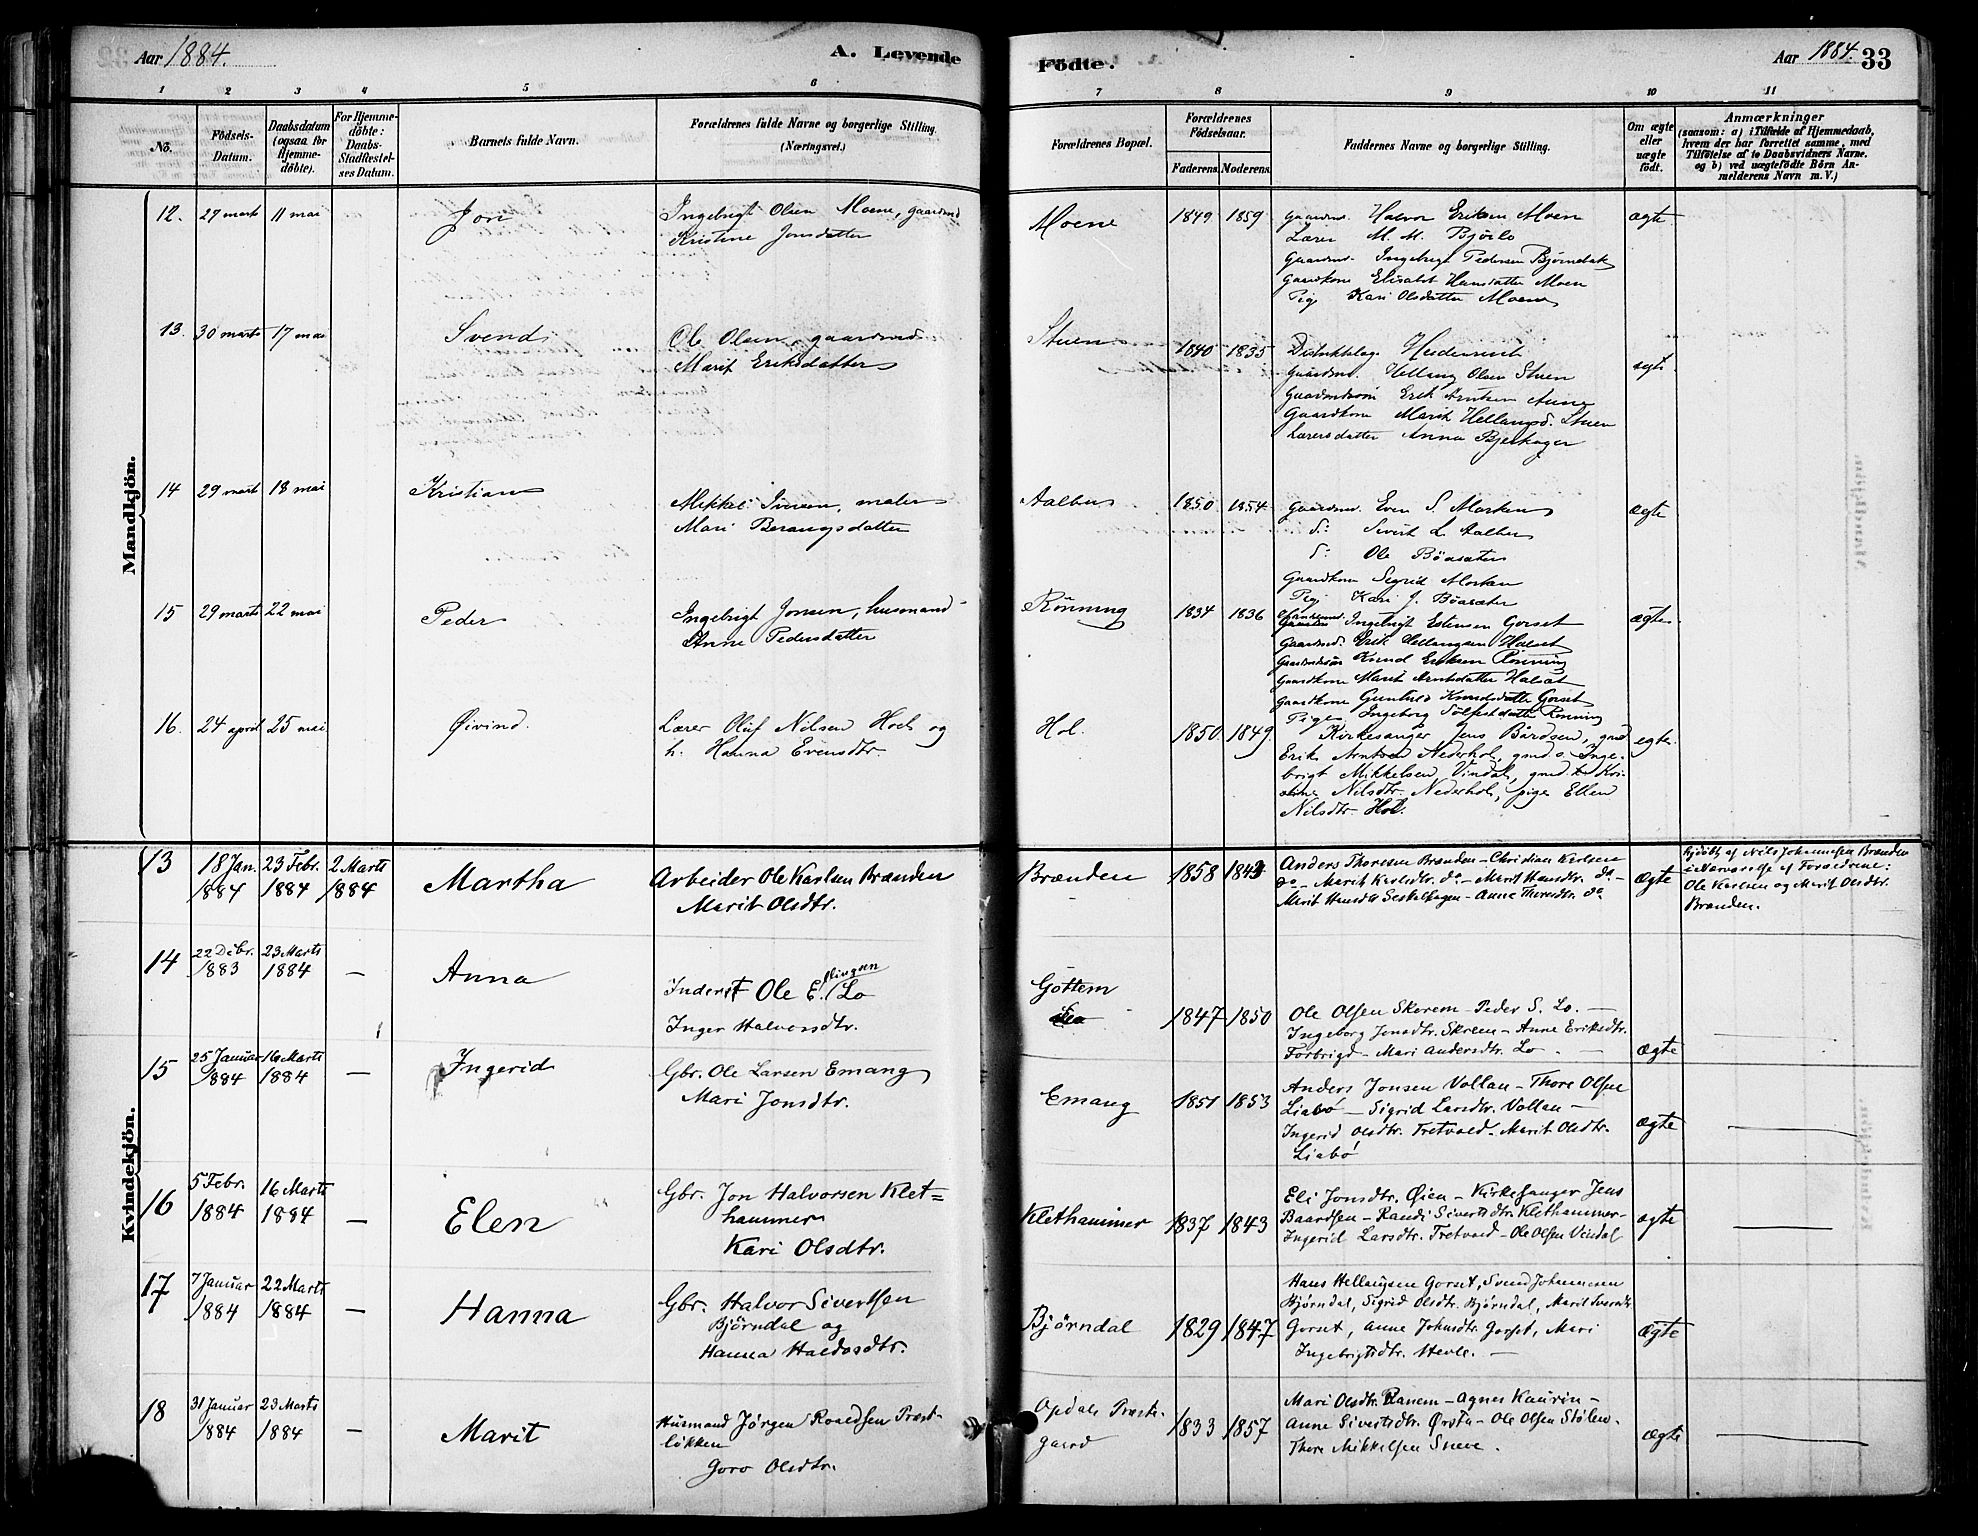 Aar 1884.
A. Levende
Födte.
Aar 1884. 33
1 2 3 4 5 6 7 8 9 10 11
No. Födsels-Datum. Daabsdatum (ogsaa for Hjemmedöbte). For Hjemmedöbte: Daabs-Stadfestelses Datum. Barnets fulde Navn. Forældrenes fulde Navne og borgerlige Stilling. (Næringsvei.) Forældrenes Bopæl. Forældrenes Födselsaar. Faderens. Moderens. Faddernes Navne og borgerlige Stilling. Om ægte eller uægte födt. Anmærkninger (saasom: a) i Tilfælde af Hjemmedaab, hvem der har forrettet samme, med Tilføielse af to Daabsvidners Navne, og b) ved uægtefödte Börn Anmelderens Navn m. V.)
Mandkjön.
12. 27 marts 11 mai Jon Ingebrigt Olsen Moene, gaardmd
Kristine Jonsdatter
Moene 1849 1859 Gaardmd. Halvor Eriksen Moen ægte.
Lærer M. M. Bjørlo
Gaardmd. Ingebrigt Pedersen Bjørndal
Gaardkone Elisabet Hansdatter Moen
Pige Kari Olsdatter Moene
13. 30 marts 17 mai Svend Ole Olsen, gaardmd
Marit Eriksdatter
Stuen 1840 1835 ægte
Gaardmd. Hellang Olsen Stuen
Gaardmdssøn Erik Arntsen Aune
Gaardkone Marit Hellangsd. Stuen
Lærersdatter Anna Bjerkager
14 29 marts 18 mai Kristian Mikkel Iversen, maler
Mari Berangsdatter
Aalbu 1850 1854 Gaardmd. Even S. Morken ægte
d: Sivert L. Aalbu
d: Ole Böasæter
Gaardkone Sigrid Morken
Pige Kari J. Böasæter
15 29 marts 22 mai Peder Ingebrigt Jonsen, husmand
Anne Pedersdatter
Rönning 1834 1836 Ingebrigt Estensen Gorset ægte
Gaardmd. Erik Hellangsen Halset
Gaardmdssön Knud Eriksen Rönning
Gaardkone Marit Arntsdatter Halset
Gaardkone Gunhild Knudsdatter Gorset
Pige Ingeborg Sölfestdatter Rönning
16. 24 april 25 mai Øivind. Lærer Oluf Nilsen Hoel og
h. Hanna Evensdtr.
Hol. 1850. 1849. Kirkesanger Jens Bårdsen, gmd ægte.
Erik Arntsen Nederhol, gmd o. Inge-
brigt Mikkelsen Vindal, gmd k Kri-
stine Nilsdtr. Nederhol, pige Ellen
Nilsdtr. Hol.
Kvindekjön.
13 18 Jan. 1884 23 Febr. 1884 2 Marts 1884 Martha Arbeider Ole Karlsen Brænden
Marit Olsdtr.
Brænden 1858 Anders Thoresen Brænden - Christian Karlsen
do - Marit Karlsdtr. do - Marit Hansdtr. do -
Marit Hansdtr - Anne Thoresdtr. do
ægte Hjdöbt af Nils Johannesen Brænden
i Nærværelse af Forældrene:
Ole Karlsen og Marit Olsdtr.
Brænden.
14 22 Debr. 1883 23 Marts 1884 — Anna Inderst Ole E. llingsen Lo
Inger Halvorsdtr.
Göttem
1847 1850 Ole Olsen Skorem - Peder S. Lo. —
Ingeborg Jonsdtr. Skrem - Anne Eriksdtr.
Forbrigd - Mari Andersdtr. Lo. — ægte
15 25 Januar 1884 16 Marts 1884 — Ingerid Gbr. Ole Larsen Emang
Mari Jonsdtr.
Emang 1851 1853 Anders Jonsen Vollan - Thore Olsen
Liabö — Sigrid Larsdtr. Vollan —
Ingerid Olsdtr. Tretvold - Marit Olsdtr.
Liabö ægte
16 5 Febr. 1884 16 Marts 1884 — Elen Gbr. Jon Halvorsen Klet=
hammer
Kari Olsdtr.
Klethammer 1837 1843 Eli Jonsdtr. Øien - Kirkesanger Jens
Baardsen - Randi Sivertsdtr. Klethammer -
Ingerid Larsdtr. Tretvold - Ole Olsen Vindal
ægte
17 7 Januar 1884 22 Marts 1884 — Hanna Gbr. Halvor Sivertsen
Björndal og
Hanna Haldosdtr.
Björndal 1829 1847 Hans Hellangsen Gorset, Svend Johannesen
Björndal, Sigrid Olsdtr. Björndal, Marit
Gorset, Anne Johnsdtr. Gorset, Mari
Ingebrigtsdtr. Hevle. — ægte
18 31 Januar 1884 23 Marts 1884 — Marit Husmand Jørgen Roaldsen Præst-
løkken
Goro Olsdtr.
Opdals Præste-
gaard 1833 1857 Mari Olsdtr. Ranem - Agnes Kaurin -
Anne Sivertsdtr. Ørsta - Ole Olsen Stølen -
Thore Mikkelsen Sneve. ægte